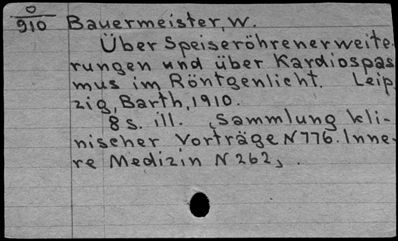 O
910 Bauermeister, W.
Über Speiseröhrenerweite-
rungen und über Kardiospas
mus im Röntgenlicht. Leip
zig, Barth, 1910.
8 s. ill. (Sammlung kli-
nischer Vorträge N 776. Inne-
re Medizin N 262).